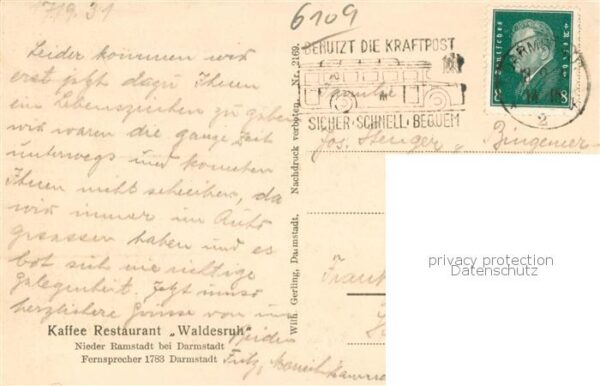 1719.31
6109
Leider kommen wir
erst jetzt dazu Ihnen
ein Lebenszeichen zu geben
wir waren die ganze Zeit
unterwegs und konnten
Ihnen nicht schreiben, da
wir immer im Auto
gesessen haben und es
bot sich nie richtige
Gelegenheit. Jetzt
herzliche Grüsse von
beiden
Fritz,
Kaffee Restaurant „Waldesruh"
Nieder Ramstadt bei Darmstadt
Fernsprecher 1783 Darmstadt
Wilh. Gerling, Darmstadt. Nachdruck verboten. Nr. 2169.
BENUTZT DIE KRAFTPOST
SICHER·SCHNELL·BEQUEM
DARMSTADT
2
Deutsches Reich
8 8
Familie
Jos. Stenger, Bingemer
Frank
privacy protection
Datenschutz